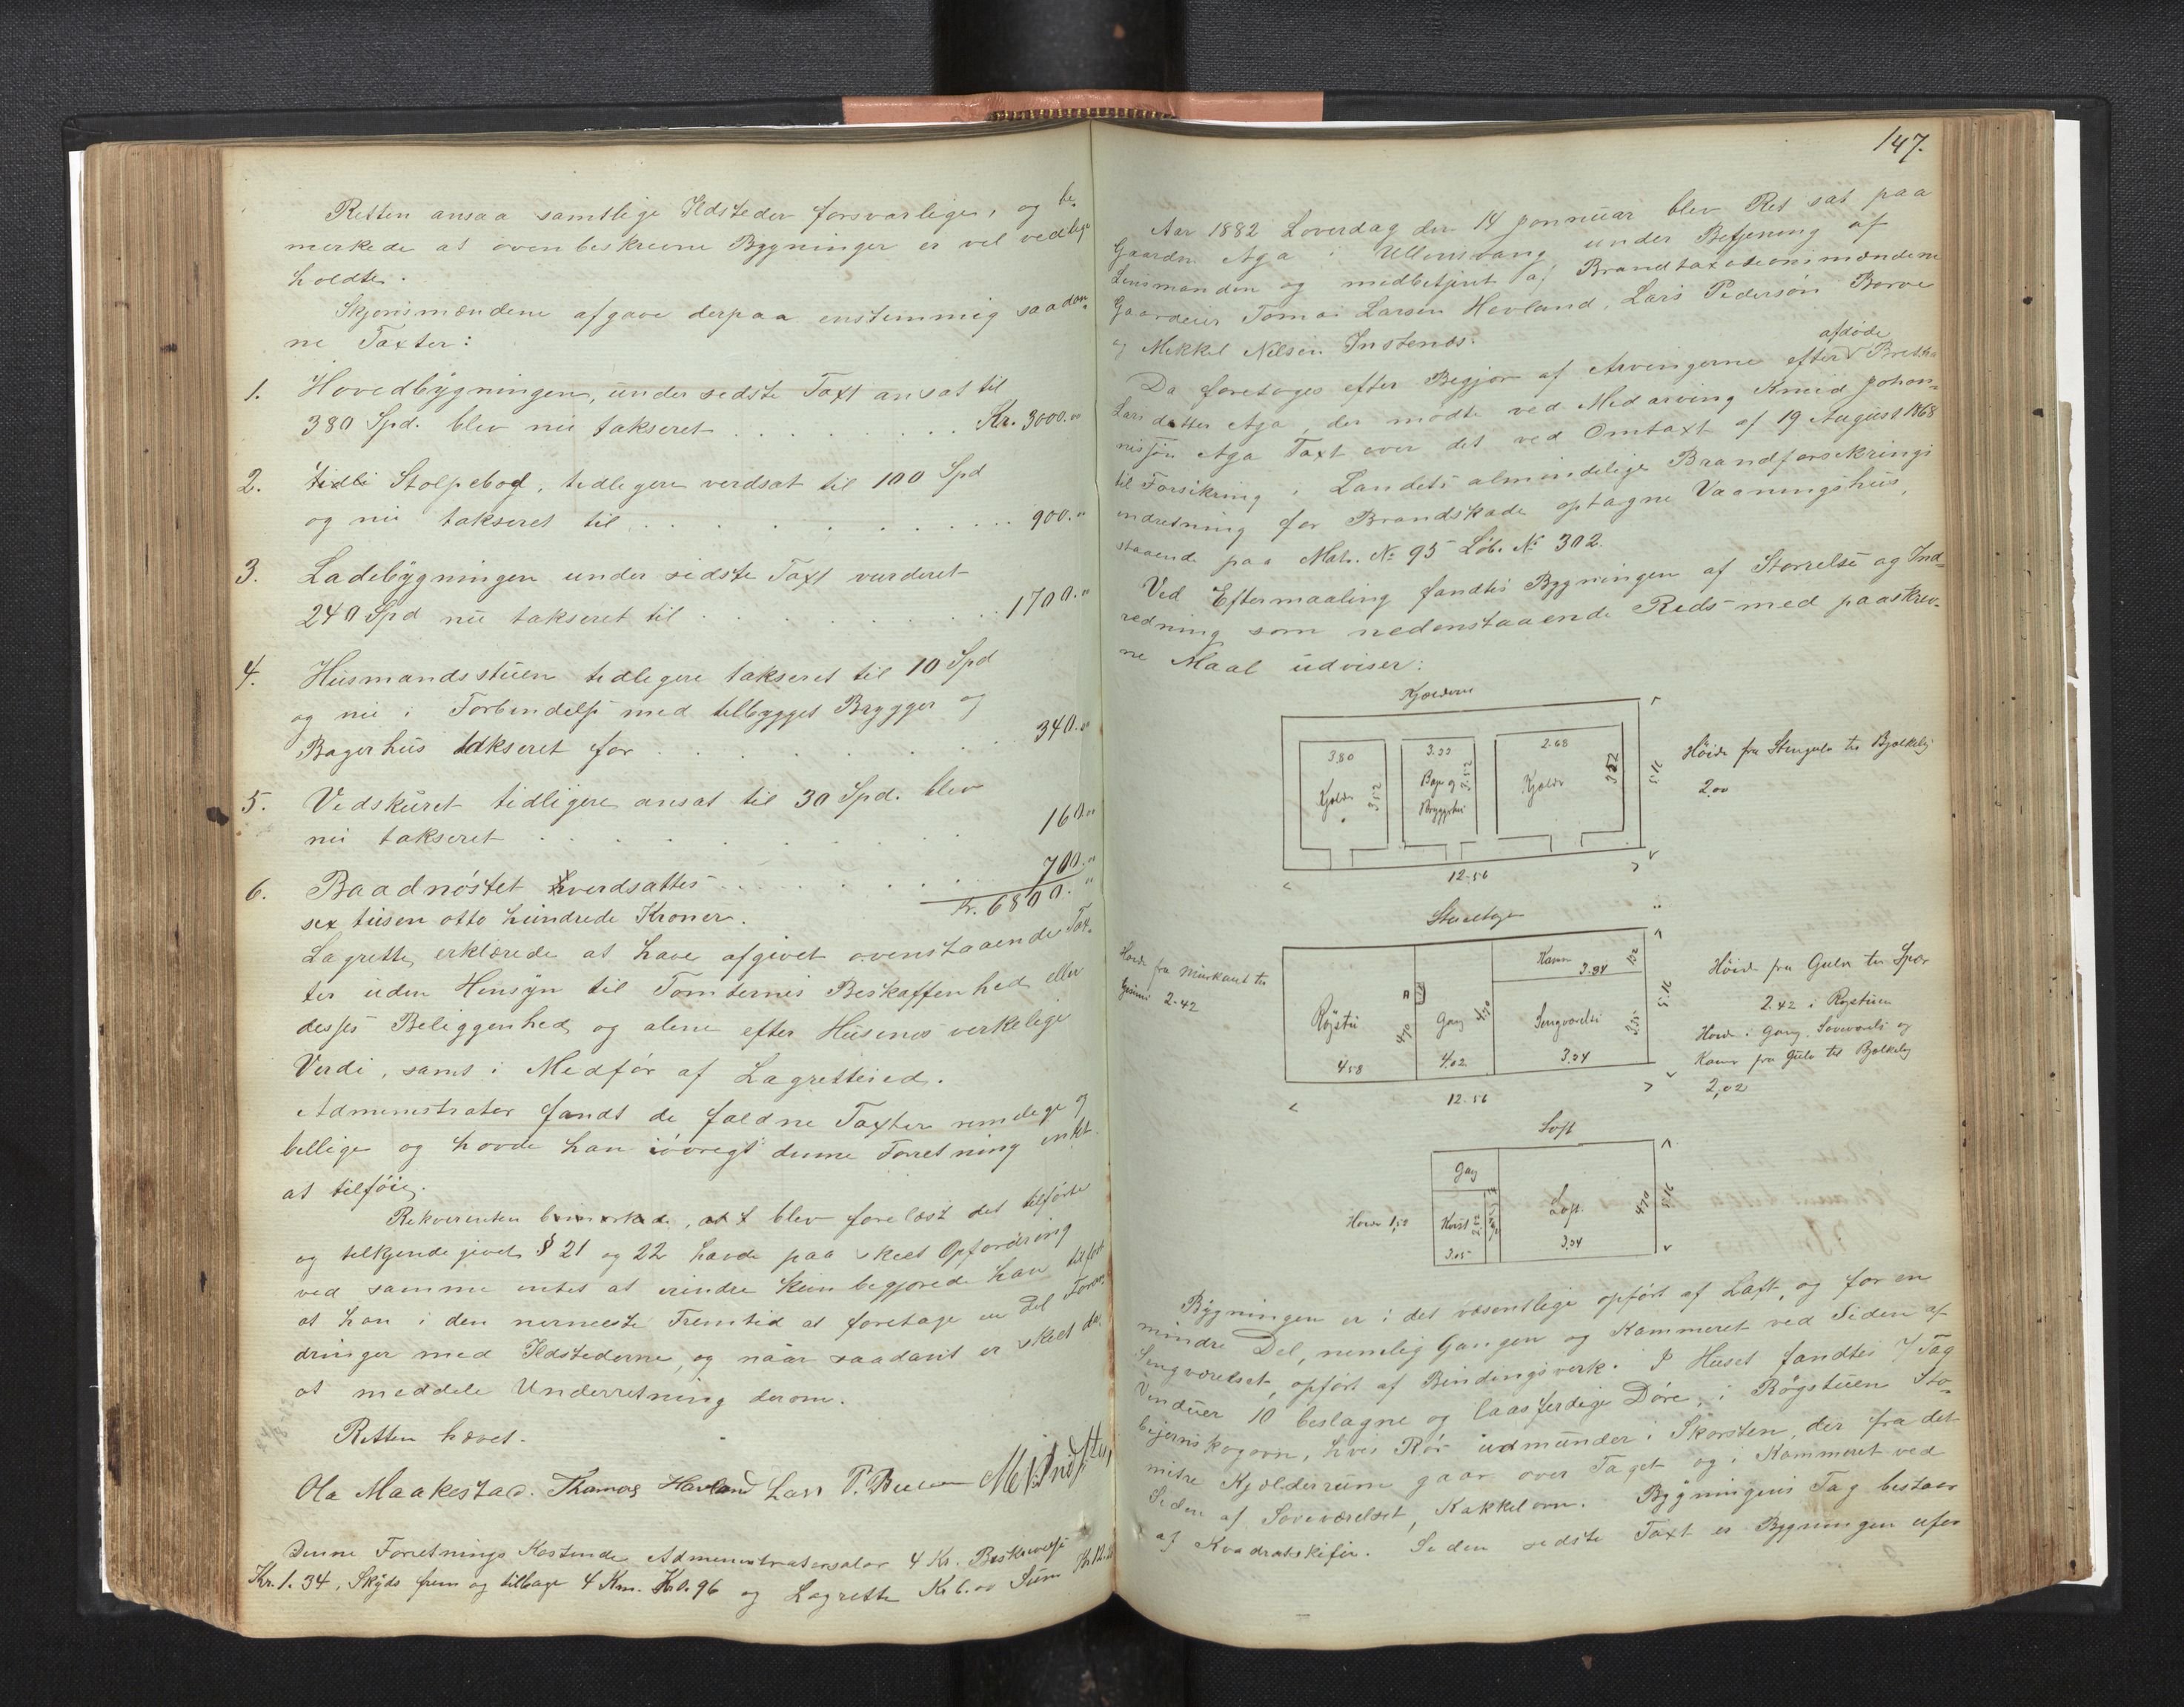 Retten ansaa samtlige Ildsteder forsvarlige, og be-
merkede at ovenbeskrevne Bygninger er vel vedlige
holdte.
Skjønsmændene afgave derpaa enstemmig saadan-
ne Taxter:
1. Hovedbygningen, under sidste Taxt ansat til
380 Spd. blev nu takseret . . . . . . Kr. 3000.00
2. tidli Stolpebod, tidligere verdsat til 100 Spd
og nu takseret til . . . . . . . 900."
3. Ladebygningen under sidste Taxt vurderet
240 Spd nu takseret til . . . . . . 1700."
4. Husmandsstuen tidligere takseret til 10 Spd
og nu i Forbindelse med tilbygget Brygger og
Bagerhus takseret for . . . . . . 340.00
5. Vedskuret tidligere ansat til 30 Spd. blev
nu takseret . . . . . . 160."
6. Baadnöstet verdsattes . . . . . . 700."
Kr. 6800."
sex tusen otto hundrede Kroner.
Lagrette erklærede at have afgivet ovenstaaende Tax-
ter uden Hensyn til Tomternes Beskaffenhed eller
desses Beliggenhed og alene efter Husenes verkelige
Verdi, samt i Medför af Lagretteed.
Administrator fandt de faldne Taxter rimelige og
billige og havde han iövrigt denne Forretning intet
at tilföie.
Rekvirenten bemerkede, at blev forelæst det tilförte
og tilkjendegivet § 21 og 22 havde paa skeet Opfordring
ved samme intet at erindre kun begjærede han tilfört
at han i den nermeste Fremtid at foretage en Del Foran-
dringer med Ildstederne, og naar saadant er skeet da
at meddele Underretning derom.
Retten hævet.
Ola Maakestad. Thomas Havland Lars P. Børve M. N. Instenæs
Denne Forretnings Kostende Administratorsalar 4 Kr. Beskrivelse
Kr. 1.34, Skyds frem og tilbage 4 Km. Kr 0.96 og Lagrette Kr 6.00 Sum Kr 12.
147.
Aar 1882 Löverdag den 14 Jannuar blev Ret sat paa
Gaarden Aga i Ullensvang under Betjening af
Lensmanden og medbetjent af Brandtaxationsmændene
Gaardeier Tomas Larsen Hovland, Lars Pedersön Børve
og Mikkel Nilsen Instenæs.
Da foretoges efter Begjær af Arvingerne efter afdöde Britha
Larsdatter Aga, der mödte ved Medarving Knud Johan-
nessön Aga Taxt over det ved Omtaxt af 19 August 1868
til Forsikring i Landets almindelige Brandforsikrings
indretning for Brandskade optagne Vaaningshus,
staaende paa Matr. No 95 Löb. No 302.
Ved Eftermaaling fandtes Bygningen af Störrelse og Ind-
redning som nedenstaaende Rids med paaskrev-
ne Maal udviser:
Kjælderne
3.80 3.33 2.68
Kjælder 3.52 Bage og Bryggerhus 3.52 Kjælder 3.52 5.16
12.56
Höide fra Stengulv til Bjælkelag
2.00
Stueetage
Höide fra Murkant til
Gesims 2.42
Röjstu 4.70 4.58
Gang 4.70 4.02
Kamer 3.34 1.52
Sengværelse 3.35 3.34
5.16
12.56
Höide fra Gulv til Sper
2.42 i Röjstuen
Höide i Gang. Soveværelse og
Kamer fra Gulv til Bjælkelag
2,02
Loft
Gang
Höide 1,52 Kvist 2.12 3.05
Loft. 4.70 3.34 5.16
Bygningen er i det væsentlige opfört af Laft, og for en
mindre Del, nemlig Gangen og Kammeret ved Siden af
Sengværelset, opfört af Bindingsverk. I Huset fandtes 7 Fag
Vinduer 10 beslagne og laasferdige Döre, i Rögstuen Stö-
bejerns kogovn, hvis Rör udmunder i Skorsten, der fra det
mitre Kjælderrum gaar over Taget og i Kammeret ved
Siden af Soveværelset, Kakkelovn. Bygningens Tag bestaar
af Kvadratskifer. Siden sidste Taxt er Bygningen ufor